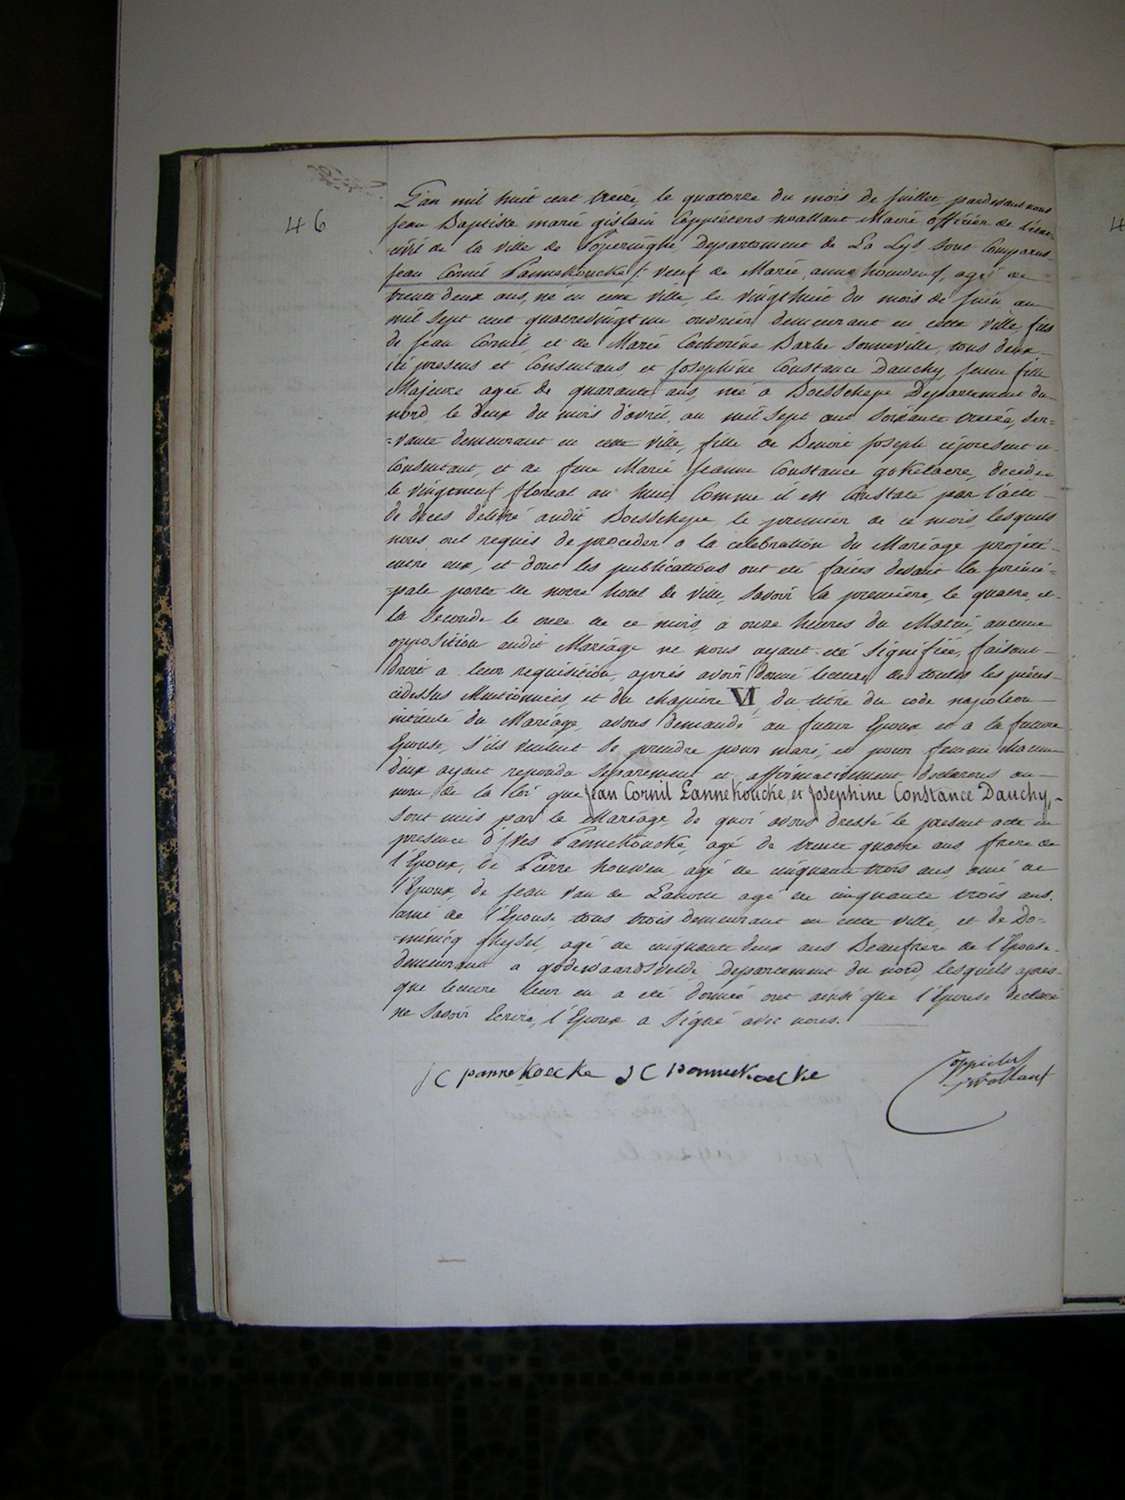 46
L'an mil huit cent treize, le quatorze du mois de Juillet, pardevant nous
Jean Baptiste marie gislain Coppieters Wallant Maire officier de l'état
civil de la ville de Poperinghe, Departement de La Lys sont Comparus
Jean Cornil Pannekoucke /: veuf de Marie anne houwen :/ agé de
trente deux ans, né en cette ville, le vingthuit du mois de Juin an
mil sept cent quatrevingt un ouvrier demeurant en cette ville, fils
de Jean Cornil, et de Marie Catherine Barbe Sonneville, tous deux
ici presens et Consentans et Josephine Constance Dauchy, Jeune fille
Majeure agée de quarante ans, née a Boesschepe Departement du
nord, le deux du mois d'avril, an mil sept cent soixante treize, ser=
=vante demeurant en cette ville, fille de Benoit Joseph ci present et
Consentant, et de feue Marie Jeanne Constance decedée
le vingtneuf floreal an huit, Comme il est Constaté par l'acte
de deces delivré audit Boesschepe le premier de ce mois, lesquels
nous ont requis de proceder a la celebration du Mariage projetté
entre eux, et dont les publications ont eté faites devant la princi=
=pale porte de notre hotel de Ville, savoir la premiere, le quatre, et
la Seconde le onze de ce mois, a onze heures du Matin, aucune
opposition audit Mariage ne nous ayant eté Signifiée, faisant
droit a leur requisition, apres avoir donné lecture de toutes les pieces
cidessus Mentionnées, et du chapitre VI, du titre du code napoleon
intitulé du Mariage, avons demandé au futur Epoux et a la future
Epouse, s'ils veulent se prendre pour mari, et pour femme chacun
d'eux ayant repondu Separement et affirmativement declarons au
nom de la loi que Jean Cornil Pannekoucke, et Josephine Constance Dauchy,
sont unis par le Mariage, de quoi avons dressé le present acte en
presence d'Ives Pannekoucke, agé de trente quatre ans frere de
l'Epoux, de Pierre houwen, agé de cinquante trois ans ami de
l'Epoux, de Jean Van de agé de cinquante trois ans,
ami de l'Epouse, tous trois demeurant en cette ville, et de Do=
=minicq agé de cinquante deux ans Beaufrere de l'Epouse
demeurant a godewaardsvelde, Departement du nord, lesquels apres
que lecture leur en a eté donnée ont ainsi que l'Epouse declaré
ne savoir Ecrire, l'Epoux a signé avec nous.
JC pannekoecke JC pannekoecke
Coppieters
Wallant